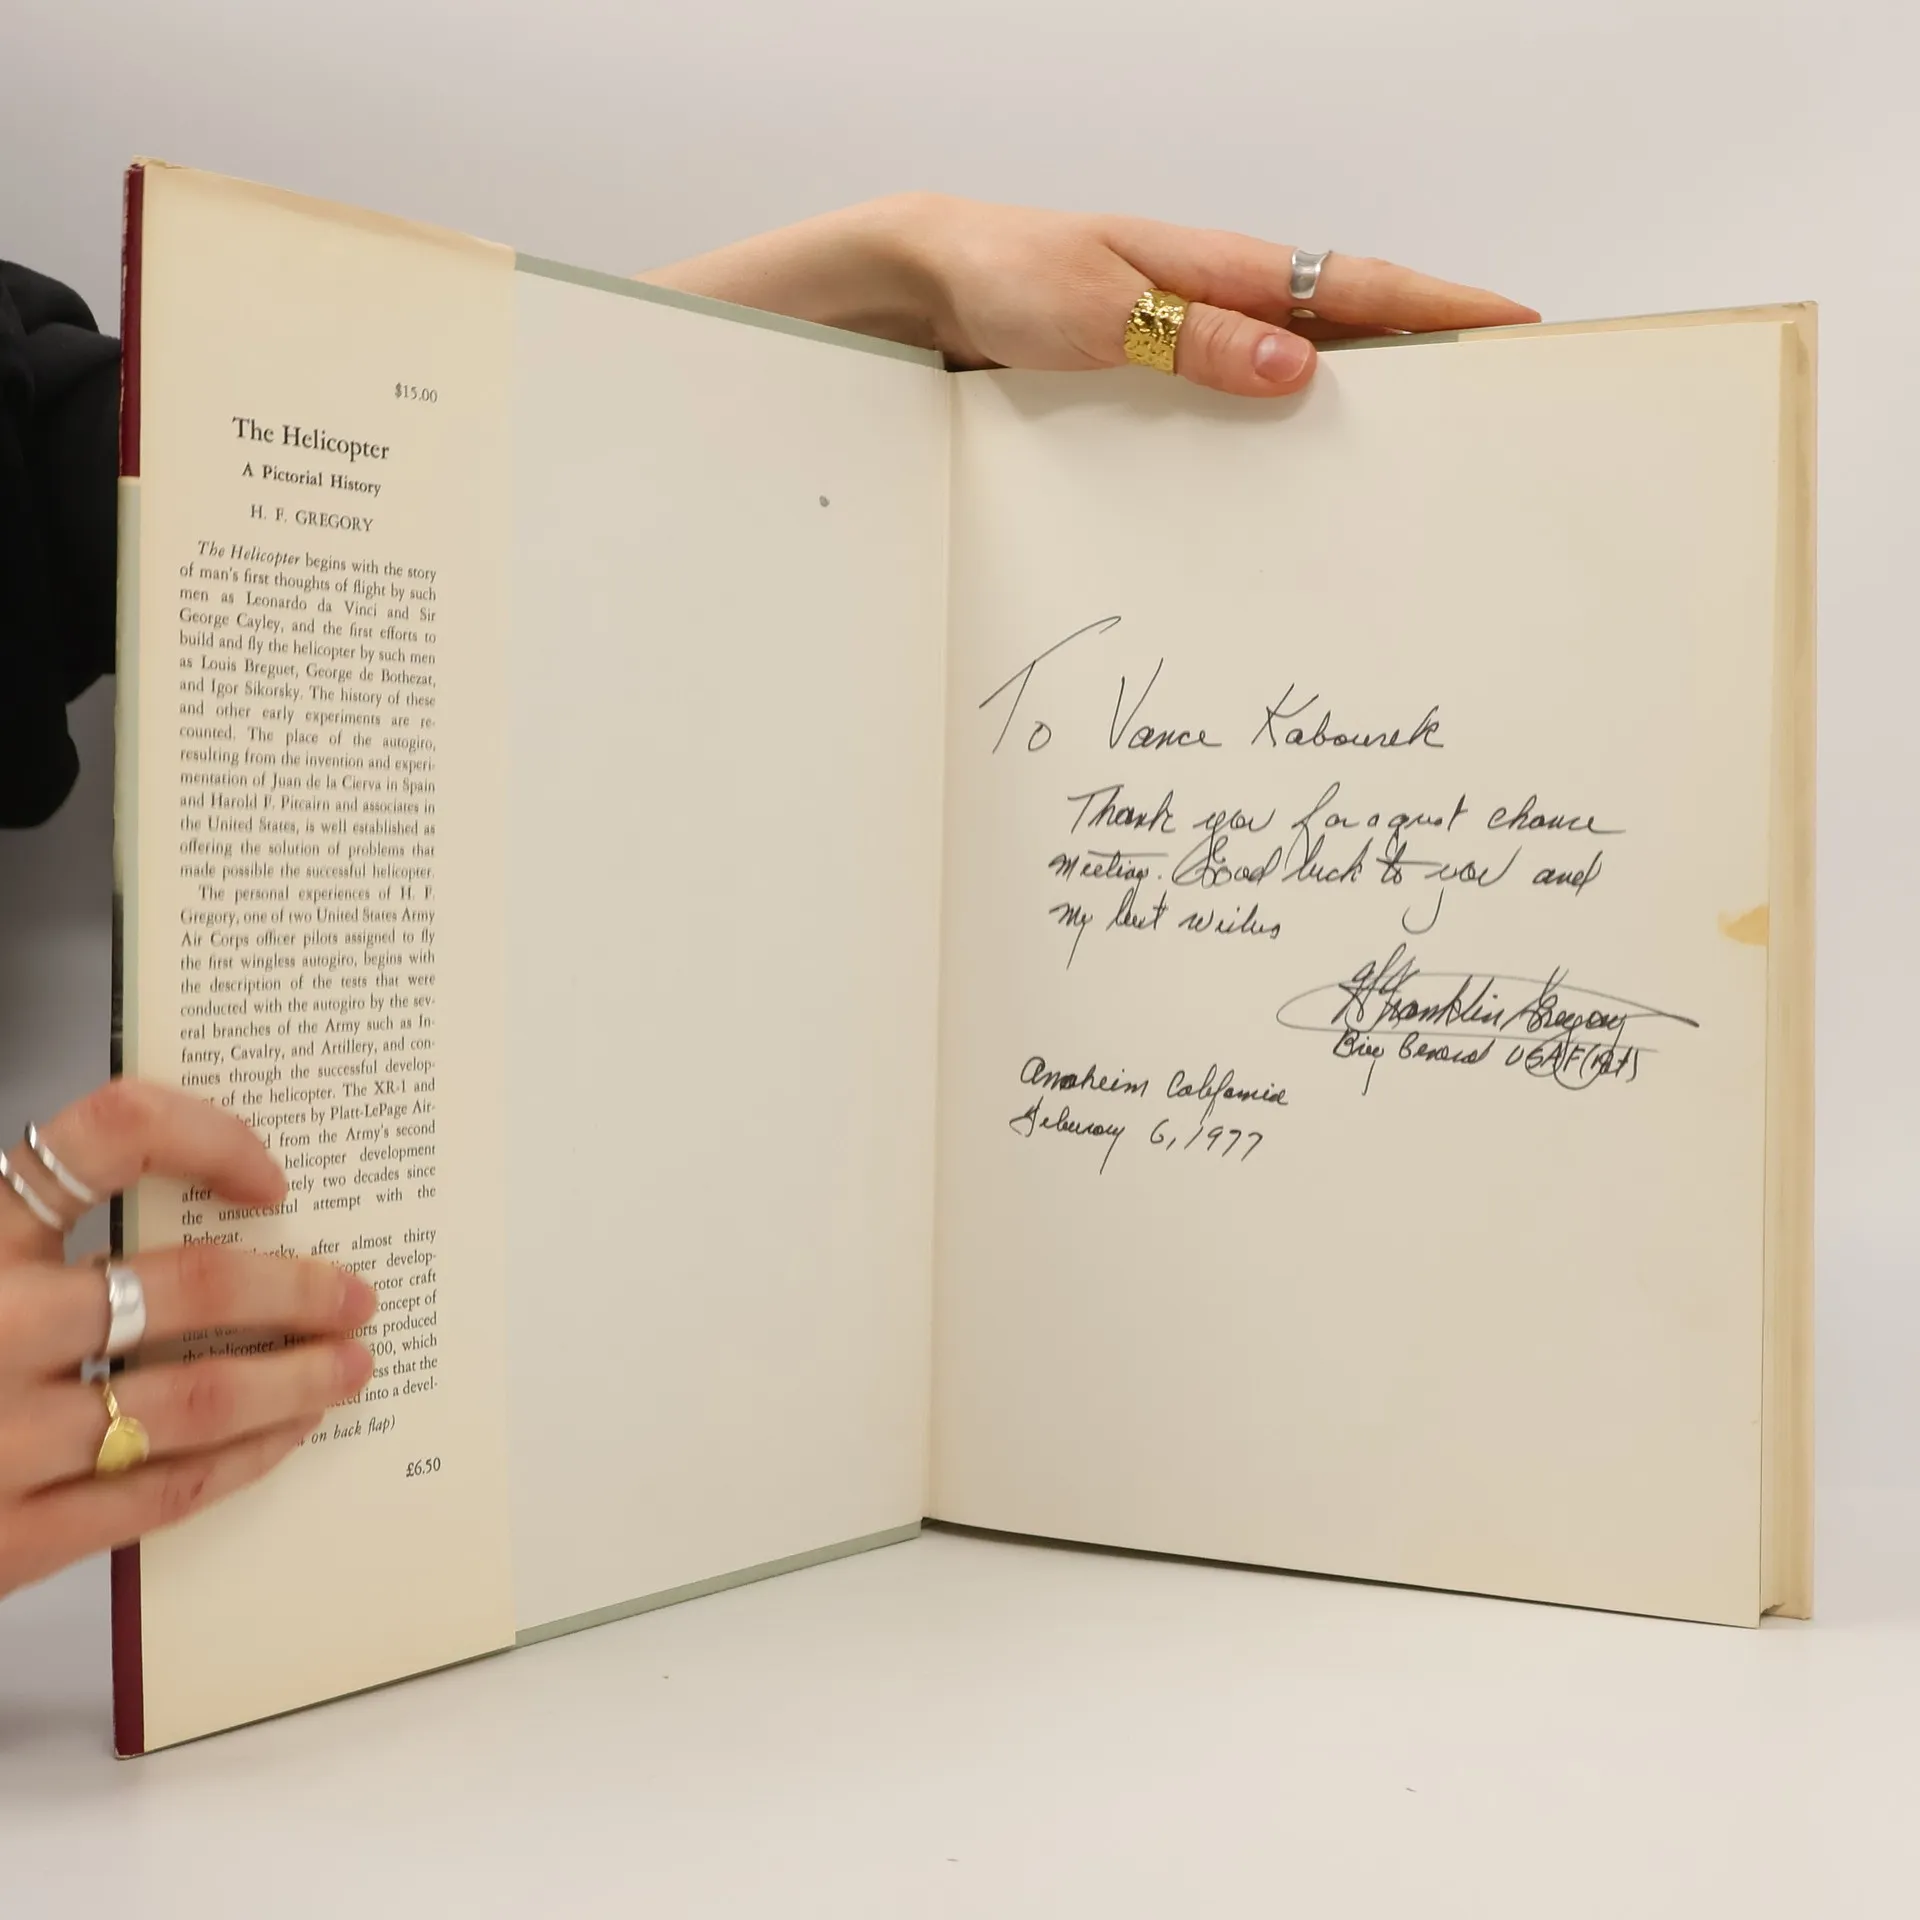 $15.00
The Helicopter
A Pictorial History
H. F. GREGORY
The Helicopter begins with the story
of man's first thoughts of flight by such
men as Leonardo da Vinci and Sir
George Cayley, and the first efforts to
build and fly the helicopter by such men
as Louis Breguet, George de Bothezat,
and Igor Sikorsky. The history of these
and other early experiments are re-
counted. The place of the autogiro,
resulting from the invention and experi-
mentation of Juan de la Cierva in Spain
and Harold F. Pitcairn and associates in
the United States, is well established as
offering the solution of problems that
made possible the successful helicopter.
The personal experiences of H. F.
Gregory, one of two United States Army
Air Corps officer pilots assigned to fly
the first wingless autogiro, begins with
the description of the tests that were
conducted with the autogiro by the sev-
eral branches of the Army such as In-
fantry, Cavalry, and Artillery, and con-
tinues through the successful develop-
of the helicopter. The XR-1 and
helicopters by Platt-LePage Air-
from the Army's second
helicopter development
after
the unsuccessful attempt with the
Bothezat.
after almost thirty
develop-
rotor craft
concept of
that was
the helicopter. efforts produced
300, which
that the
into a devel-
on back flap)
£6.50
To Vance Kabourek
Thank you for a great chance
meeting. Good luck to you and
my best wishes
H Franklin Gregory
Brig General USAF (Ret)
Anaheim California
February 6, 1977